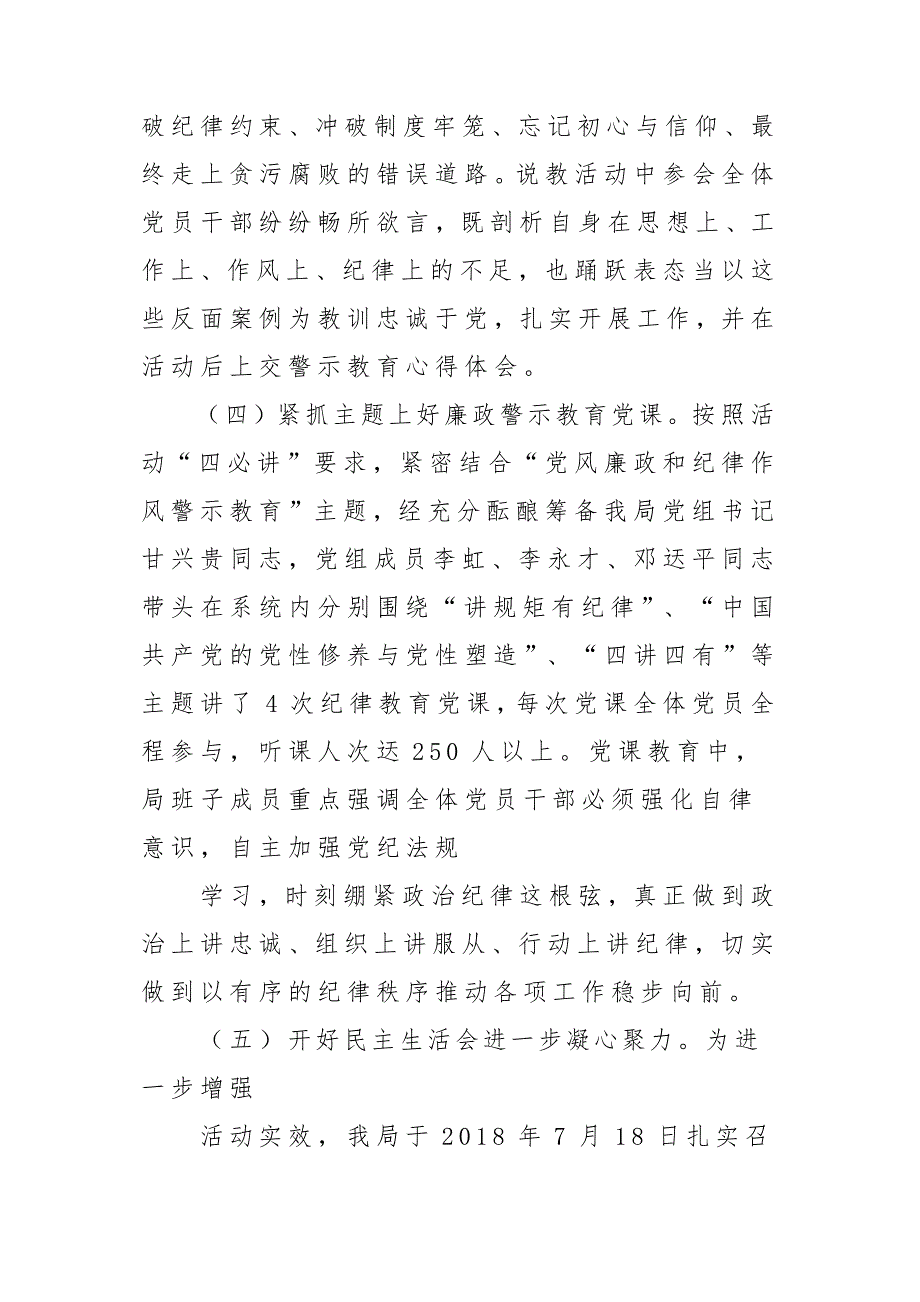 破纪律约束、冲破制度牢笼、忘记初心与信仰、最
终走上贪污腐败的错误道路。说教活动中参会全体
党员干部纷纷畅所欲言，既剖析自身在思想上、工
作上、作风上、纪律上的不足，也踊跃表态当以这
些反面案例为教训忠诚于党，扎实开展工作，并在
活动后上交警示教育心得体会。
（四）紧抓主题上好廉政警示教育党课。按照活
动“四必讲”要求，紧密结合“党风廉政和纪律作
风警示教育”主题，经充分酝酿筹备我局党组书记
甘兴贵同志，党组成员李虹、李永才、邓迗平同志
带头在系统内分别围绕“讲规矩有纪律”、“中国
共产党的党性修养与党性塑造”、“四讲四有”等
主题讲了 4 次纪律教育党课，每次党课全体党员全
程参与，听课人次迗 250 人以上。党课教育中，
局班子成员重点强调全体党员干部必须强化自律
意识，自主加强党纪法规
学习，时刻绷紧政治纪律这根弦，真正做到政
治上讲忠诚、组织上讲服从、行动上讲纪律，切实
做到以有序的纪律秩序推动各项工作稳步向前。
（五）开好民主生活会进一步凝心聚力。为进
一步增强
活动实效，我局于 2018 年 7 月 18 日扎实召